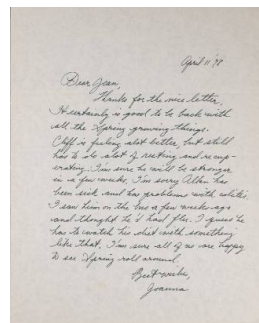 April 11 '78
Dear Jean,
Thanks for the nice letter.
It certainly is good to be back with
all the Spring growing things.
Cliff is feeling alot better, but still
has to do alot of resting and recup-
erating. I'm sure he will be stronger
in a few weeks. I'm sorry Allen has
been sick and has problems with
I saw him on the bus a few weeks ago
and thought he'd had flu. I guess he
has to watch his diet with something
like that. I'm sure all of us are happy
to see Spring roll around.
Best wishes,
Joanna